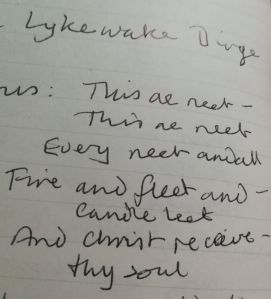 Lykewake Dirge
rus: This ae neet -
This ae neet
Every neet and all
Fire and fleet and -
Candle leet
And Christ receive -
thy soul